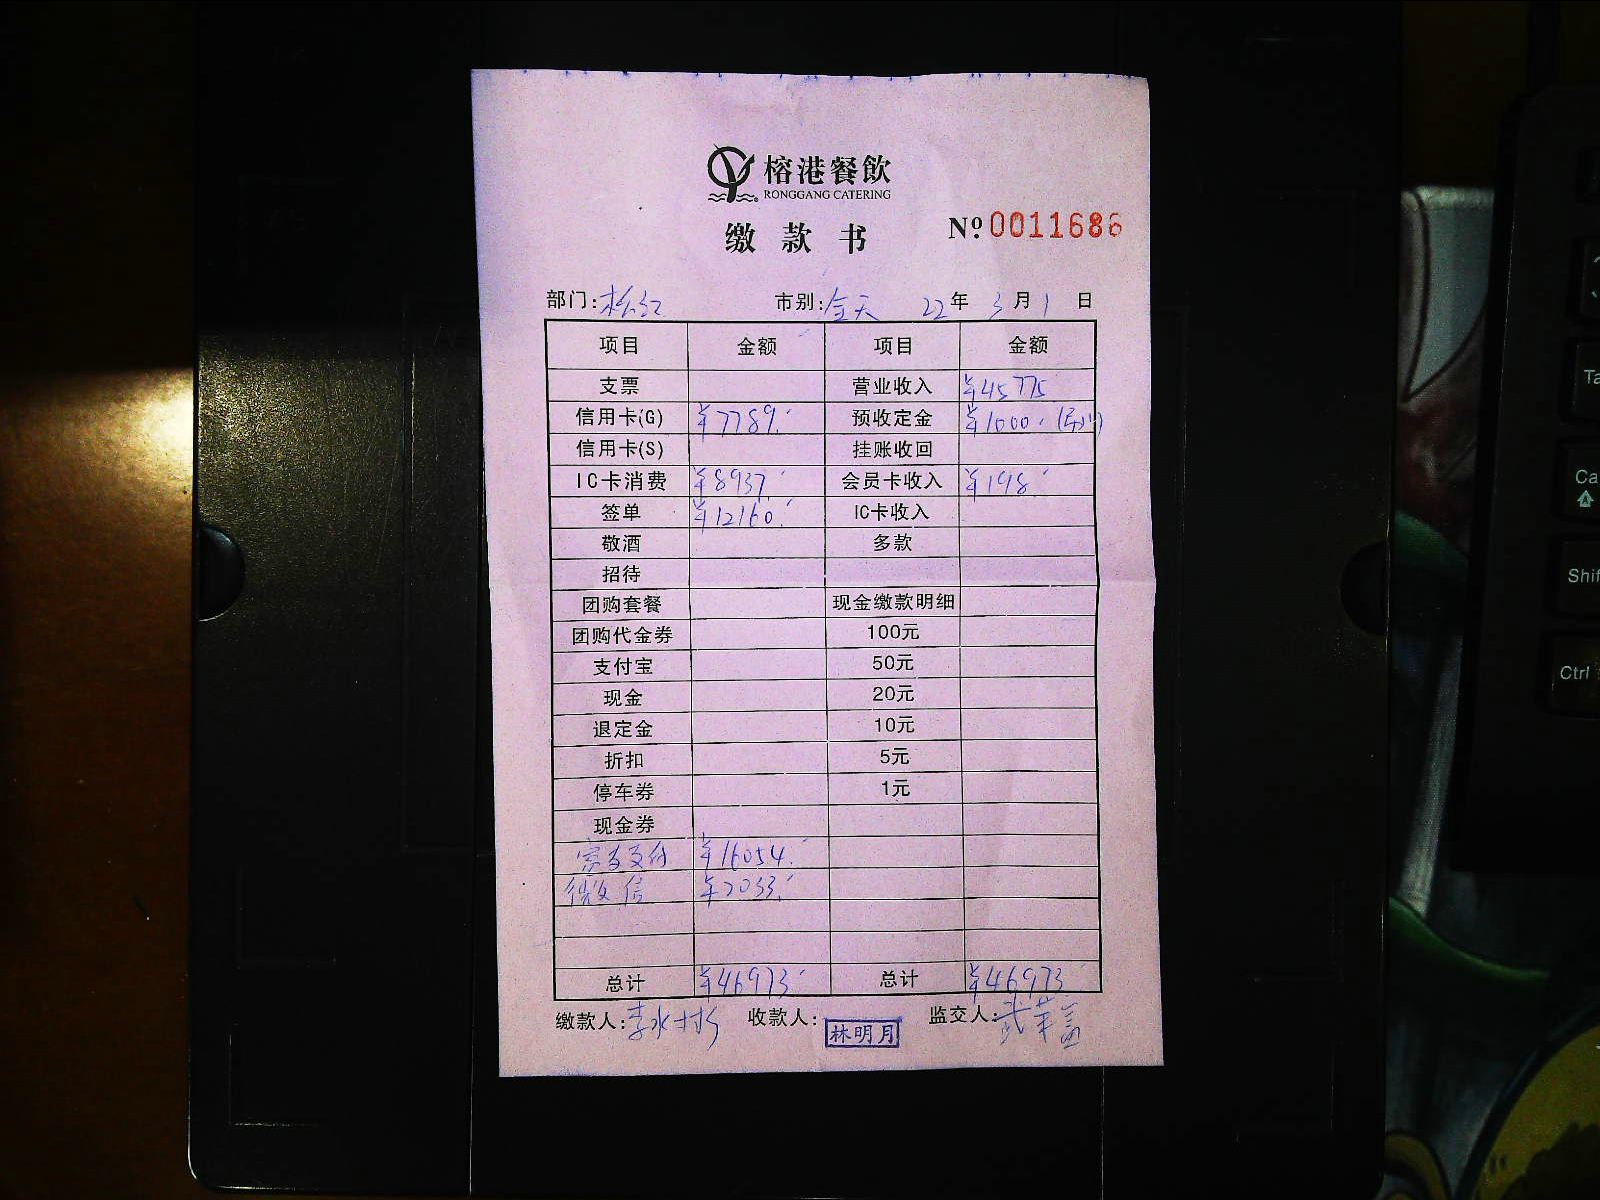 榕港餐飲
RONGGANG CATERING
缴款书 Nº 0011686
部门: 松江 市别: 全天 22年 3月 1日
项目 金额 项目 金额
支票 营业收入 ¥45775
信用卡(G) ¥7789. 预收定金 ¥1000.
信用卡(S) 挂账收回
IC卡消费 ¥8937. 会员卡收入 ¥198
签单 ¥12160. IC卡收入
敬酒 多款
招待
团购套餐 现金缴款明细
团购代金券 100元
支付宝 50元
现金 20元
退定金 10元
折扣 5元
停车券 1元
现金券
支付 ¥16054.
微信 ¥2033.
总计 ¥46973. 总计 ¥46973
缴款人: 李水 收款人: 林明月 监交人:
Ta
Ca
Shif
Ctrl